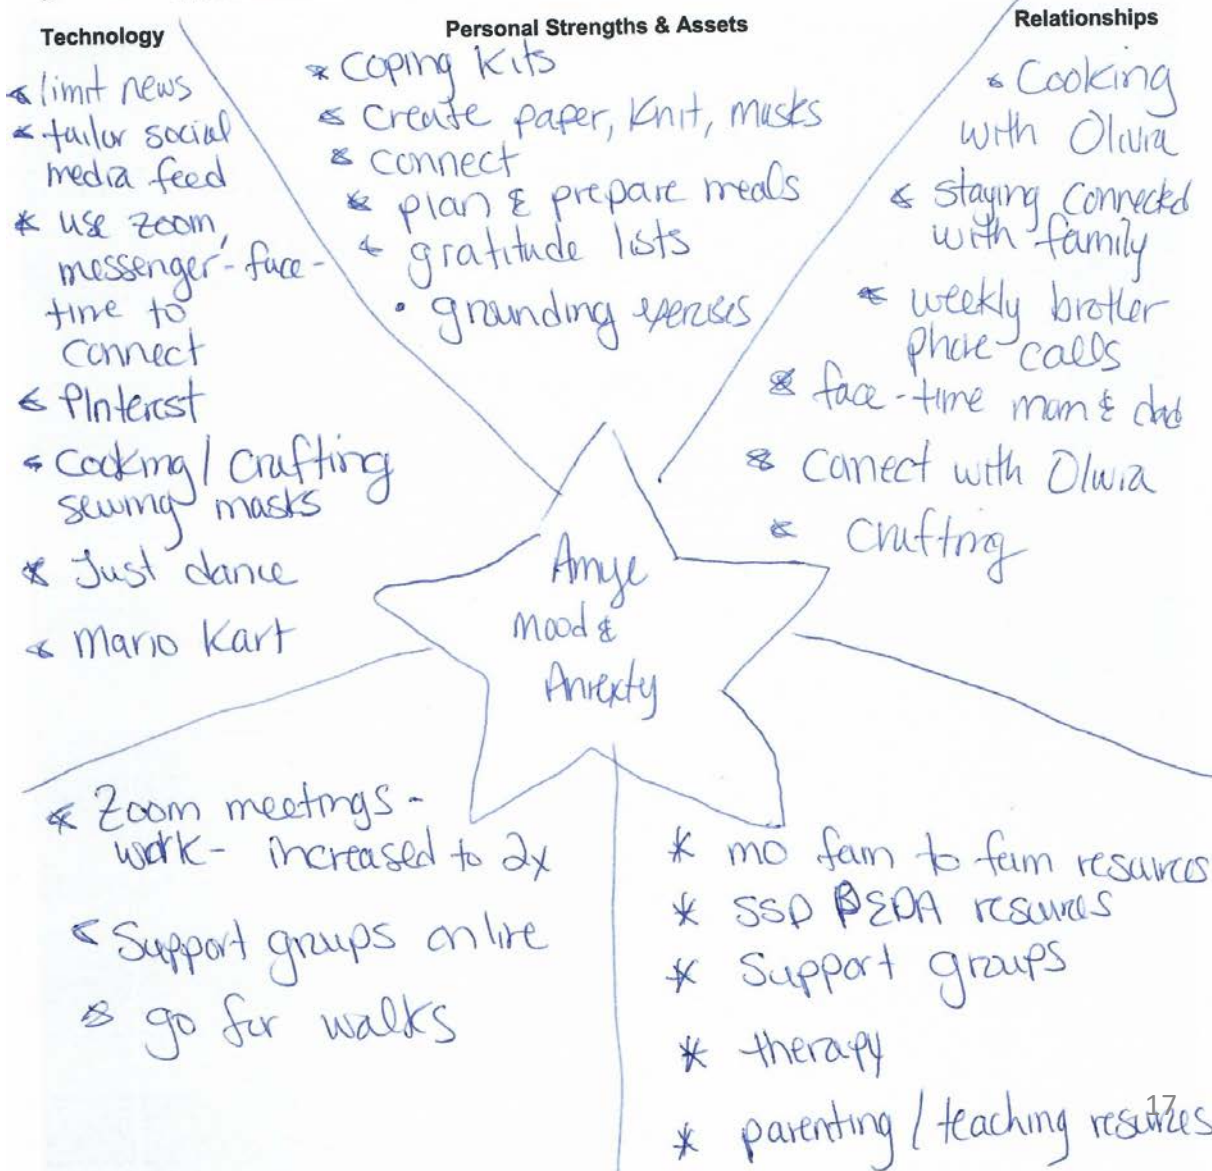 Technology
* limit news
* tailor social
media feed
* use zoom,
messenger - face-
time to
connect
* PInterest
* Cooking / Crafting
sewing masks
* Just dance
* Mario Kart
Personal Strengths & Assets
* Coping Kits
* Create paper, Knit, masks
* connect
* plan & prepare meals
* gratitude lists
• grounding
Relationships
* Cooking
with Olivia
* staying connected
with family
* weekly brother
phone calls
* face-time mom & dad
* connect with Olivia
* Crafting
Amye
Mood &
Anxiety
* Zoom meetings -
work - increased to 2x
* Support groups online
* go for walks
* mo fam to fam resources
* SSD resources
* Support groups
* therapy
* parenting / teaching resources
17